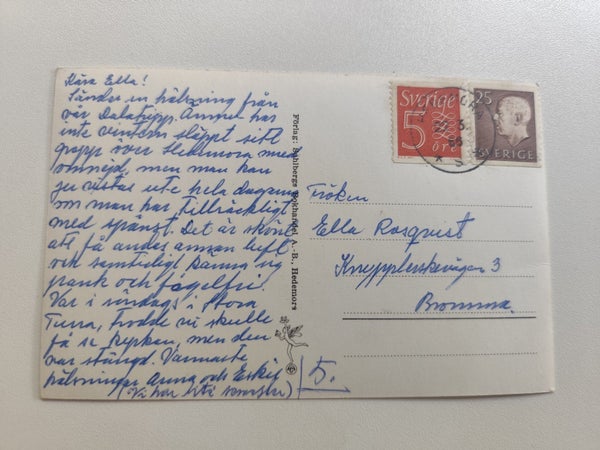 Kära Ella!
Sänder en hälsning från
vår Dalatripp. Ännu har
inte vintern släppt sitt
grepp över Hedemora med
omnejd, men man kan
ju vistas ute hela dagarna
om man har tillräckligt
med på sig. Det är skönt
att få andas annan luft
och samtidigt känna sig
frank och fågelfri.
Var i onsdags i Stora
Tuna, trodde vi skulle
få se kyrkan, men den
var stängd. Varmaste
hälsningar Anna och Eskil
(Vi har lite
Förlag: Dahlbergs Bokhandel A.-B., Hedemora
Sverige
5
öre
25
SVERIGE
Fröken
Ella Rosqvist
3
Bromma
5.